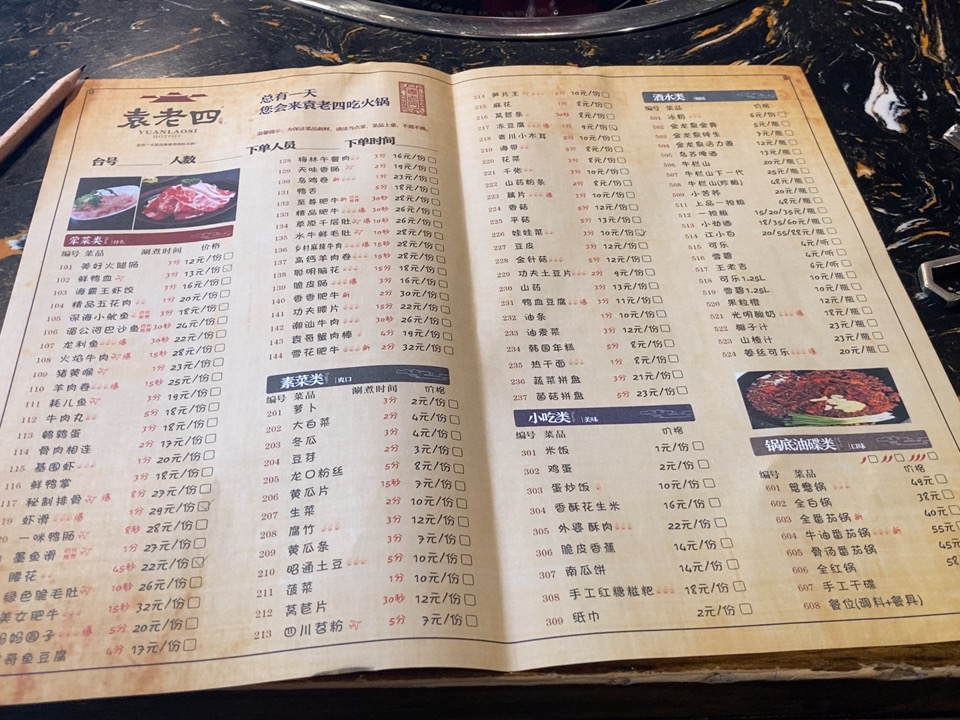 袁老四
YUANLAOSI
HOTPOT
总有一天
您会来袁老四吃火锅
台号 人数 下单人员 下单时间
荤菜类
编号 菜品 涮煮时间 价格
101 美好火腿肠 3分 12元/份
102 鲜鸭血 3分 13元/份
103 海霸王虾饺 3分 16元/份
104 精品五花肉 1分 20元/份
105 深海小鱿鱼 3分 18元/份
106 湄公河巴沙鱼 30秒 24元/份
107 龙利鱼 30秒 22元/份
108 火焰牛肉 15秒 28元/份
109 猪黄喉 1分 23元/份
110 羊肉卷 15秒 25元/份
111 耗儿鱼 3分 19元/份
112 牛肉丸 5分 18元/份
113 鹌鹑蛋 3分 18元/份
114 骨肉相连 2分 17元/份
115 基围虾 1分 20元/份
116 鲜鸭掌 3分 18元/份
117 秘制排骨 8分 27元/份
虾滑 1分 29元/份
一咪鸭肠 8秒 28元/份
墨鱼滑 1分 27元/份
腰花 45秒 22元/份
绿色脆毛肚 10秒 26元/份
美女肥牛 15秒 32元/份
圆子 5分 20元/份
哥鱼豆腐 4分 17元/份
128 梅林午餐肉 3分 16元/份
129 天味香肠 2分 19元/份
130 乌鸡卷 1分 23元/份
131 鸭舌 5分 18元/份
132 至尊肥牛 30秒 28元/份
133 精品肥牛 30秒 26元/份
134 草原千层肚 10秒 26元/份
135 水牛鲜毛肚 10秒 28元/份
136 乡村麻辣牛肉 15秒 28元/份
137 高钙羊肉卷 15秒 28元/份
138 聪明脑花 15分 18元/份
139 脆皮肠 3分 16元/份
140 香香肥牛 2分 30元/份
141 功夫腰片 15分 22元/份
142 潮汕牛肉 30秒 26元/份
143 袁哥蟹肉棒 4分 19元/份
144 雪花肥牛 2分 32元/份
素菜类 爽口
编号 菜品 涮煮时间 价格
201 萝卜 3分 2元/份
202 大白菜 2分 4元/份
203 冬瓜 3分 4元/份
204 豆芽 2分 3元/份
205 龙口粉丝 5分 8元/份
206 黄瓜片 15秒 7元/份
207 生菜 2分 10元/份
208 腐竹 3分 12元/份
209 黄瓜条 3分 7元/份
210 昭通土豆 5分 10元/份
211 菠菜 1分 10元/份
212 莴苣片 30秒 12元/份
213 四川苕粉 5分 7元/份
214 笋片王 1分 10元/份
215 麻花 8元/份
216 莴苣条 10元/份
217 冻豆腐 3分 9元/份
218 青川小木耳 5分 10元/份
219 海带 8元/份
220 花菜 3分 8元/份
221 千张 10元/份
222 山药粉条 2分 8元/份
223 藕片 3分 10元/份
224 香菇 5分 12元/份
225 平菇 5分 13元/份
226 娃娃菜 2分 10元/份
227 豆皮 3分 12元/份
228 金针菇 5分 12元/份
229 功夫土豆片 2分 9元/份
230 山药 3分 13元/份
231 鸭血豆腐 3分 11元/份
232 油条 1分 10元/份
233 油麦菜 3分 12元/份
234 韩国年糕 5分 8元/份
235 热干面 1分 8元/份
236 蔬菜拼盘 3分 21元/份
237 菌菇拼盘 5分 23元/份
小吃类 美味
编号 菜品 价格
301 米饭 1元/份
302 鸡蛋 2元/份
303 蛋炒饭 10元/份
304 香酥花生米 16元/份
305 外婆酥肉 22元/份
306 脆皮香蕉 14元/份
307 南瓜饼 14元/份
308 手工红糖糍粑 18元/份
309 纸巾 2元/份
酒水类
编号 菜品 价格
501 冰粉 6元/份
502 5元/瓶
503 7元/瓶
504 12元/瓶
505 乌苏啤酒 13元/瓶
506 牛栏山 20元/瓶
507 牛栏山下一代 25元/瓶
508 48元/瓶
509 小苦荞 20元/瓶
511 上品一担粮 48元/瓶
512 一担粮 15/20/35元/瓶
513 小劲酒 18/35/60元/瓶
514 江小白 20/55/88元/瓶
515 可乐 4元/听
516 雪碧 4元/听
517 王老吉 6元/听
518 可乐1.25L 10元/瓶
519 雪碧1.25L 10元/瓶
520 果粒橙 12元/瓶
521 光明酸奶 18元/瓶
522 椰子汁 23元/瓶
523 山楂汁 23元/瓶
524 姜丝可乐 20元/瓶
锅底油碟类 口味
编号 菜品 价格
601 鸳鸯锅 49元
602 全白锅 38元
603 全番茄锅 40元
604 牛油番茄锅 55元
605 骨汤番茄锅 45元
606 全红锅 58
607 手工干碟
608 餐位(调料+餐具)